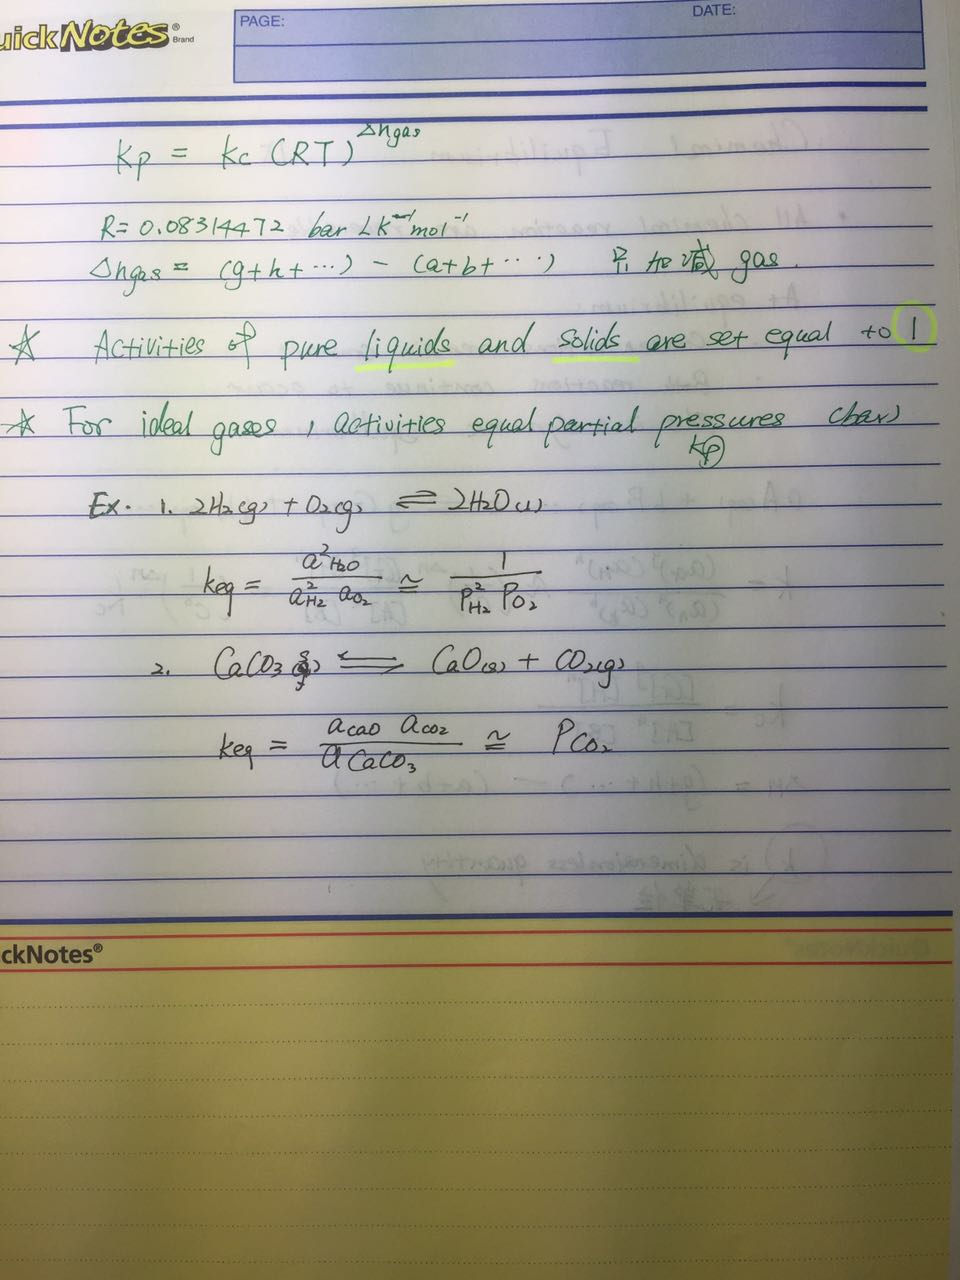 uickNotes® Brand
PAGE:
DATE:
Kp = Kc (RT)^Δngas
R = 0.08314472 bar L K⁻¹ mol⁻¹
Δngas = (g+h+···) - (a+b+···) 只加减 gas
☆ Activities of pure liquids and solids are set equal to 1
☆ For ideal gases, activities equal partial pressures (bar)
Kp
Ex. 1. 2H₂(g) + O₂(g) ⇌ 2H₂O(l)
Keq = a²H₂O / a²H₂ aO₂ ≅ 1 / P²H₂ PO₂
2. CaCO₃(s) ⇌ CaO(s) + CO₂(g)
Keq = aCaO aCO₂ / aCaCO₃ ≅ PCO₂
ckNotes®